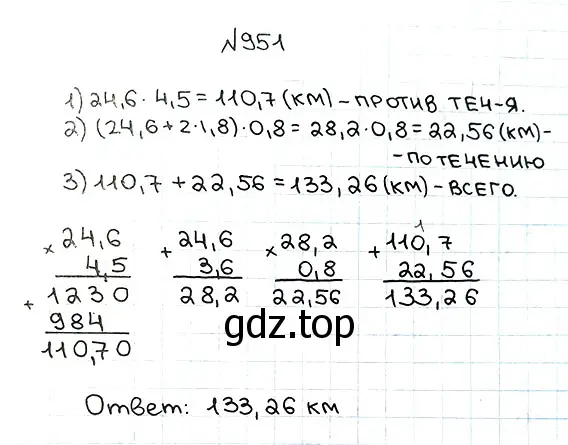 №951
1) 24,6 · 4,5 = 110,7 (км) – против теч-я.
2) (24,6 + 2 · 1,8) · 0,8 = 28,2 · 0,8 = 22,56 (км) -
- по течению
3) 110,7 + 22,56 = 133,26 (км) – всего.
× 24,6
4,5
+ 1230
984
110,70
+ 24,6
3,6
28,2
× 28,2
0,8
22,56
1
+ 110,7
22,56
133,26
gdz.top
Ответ: 133,26 км